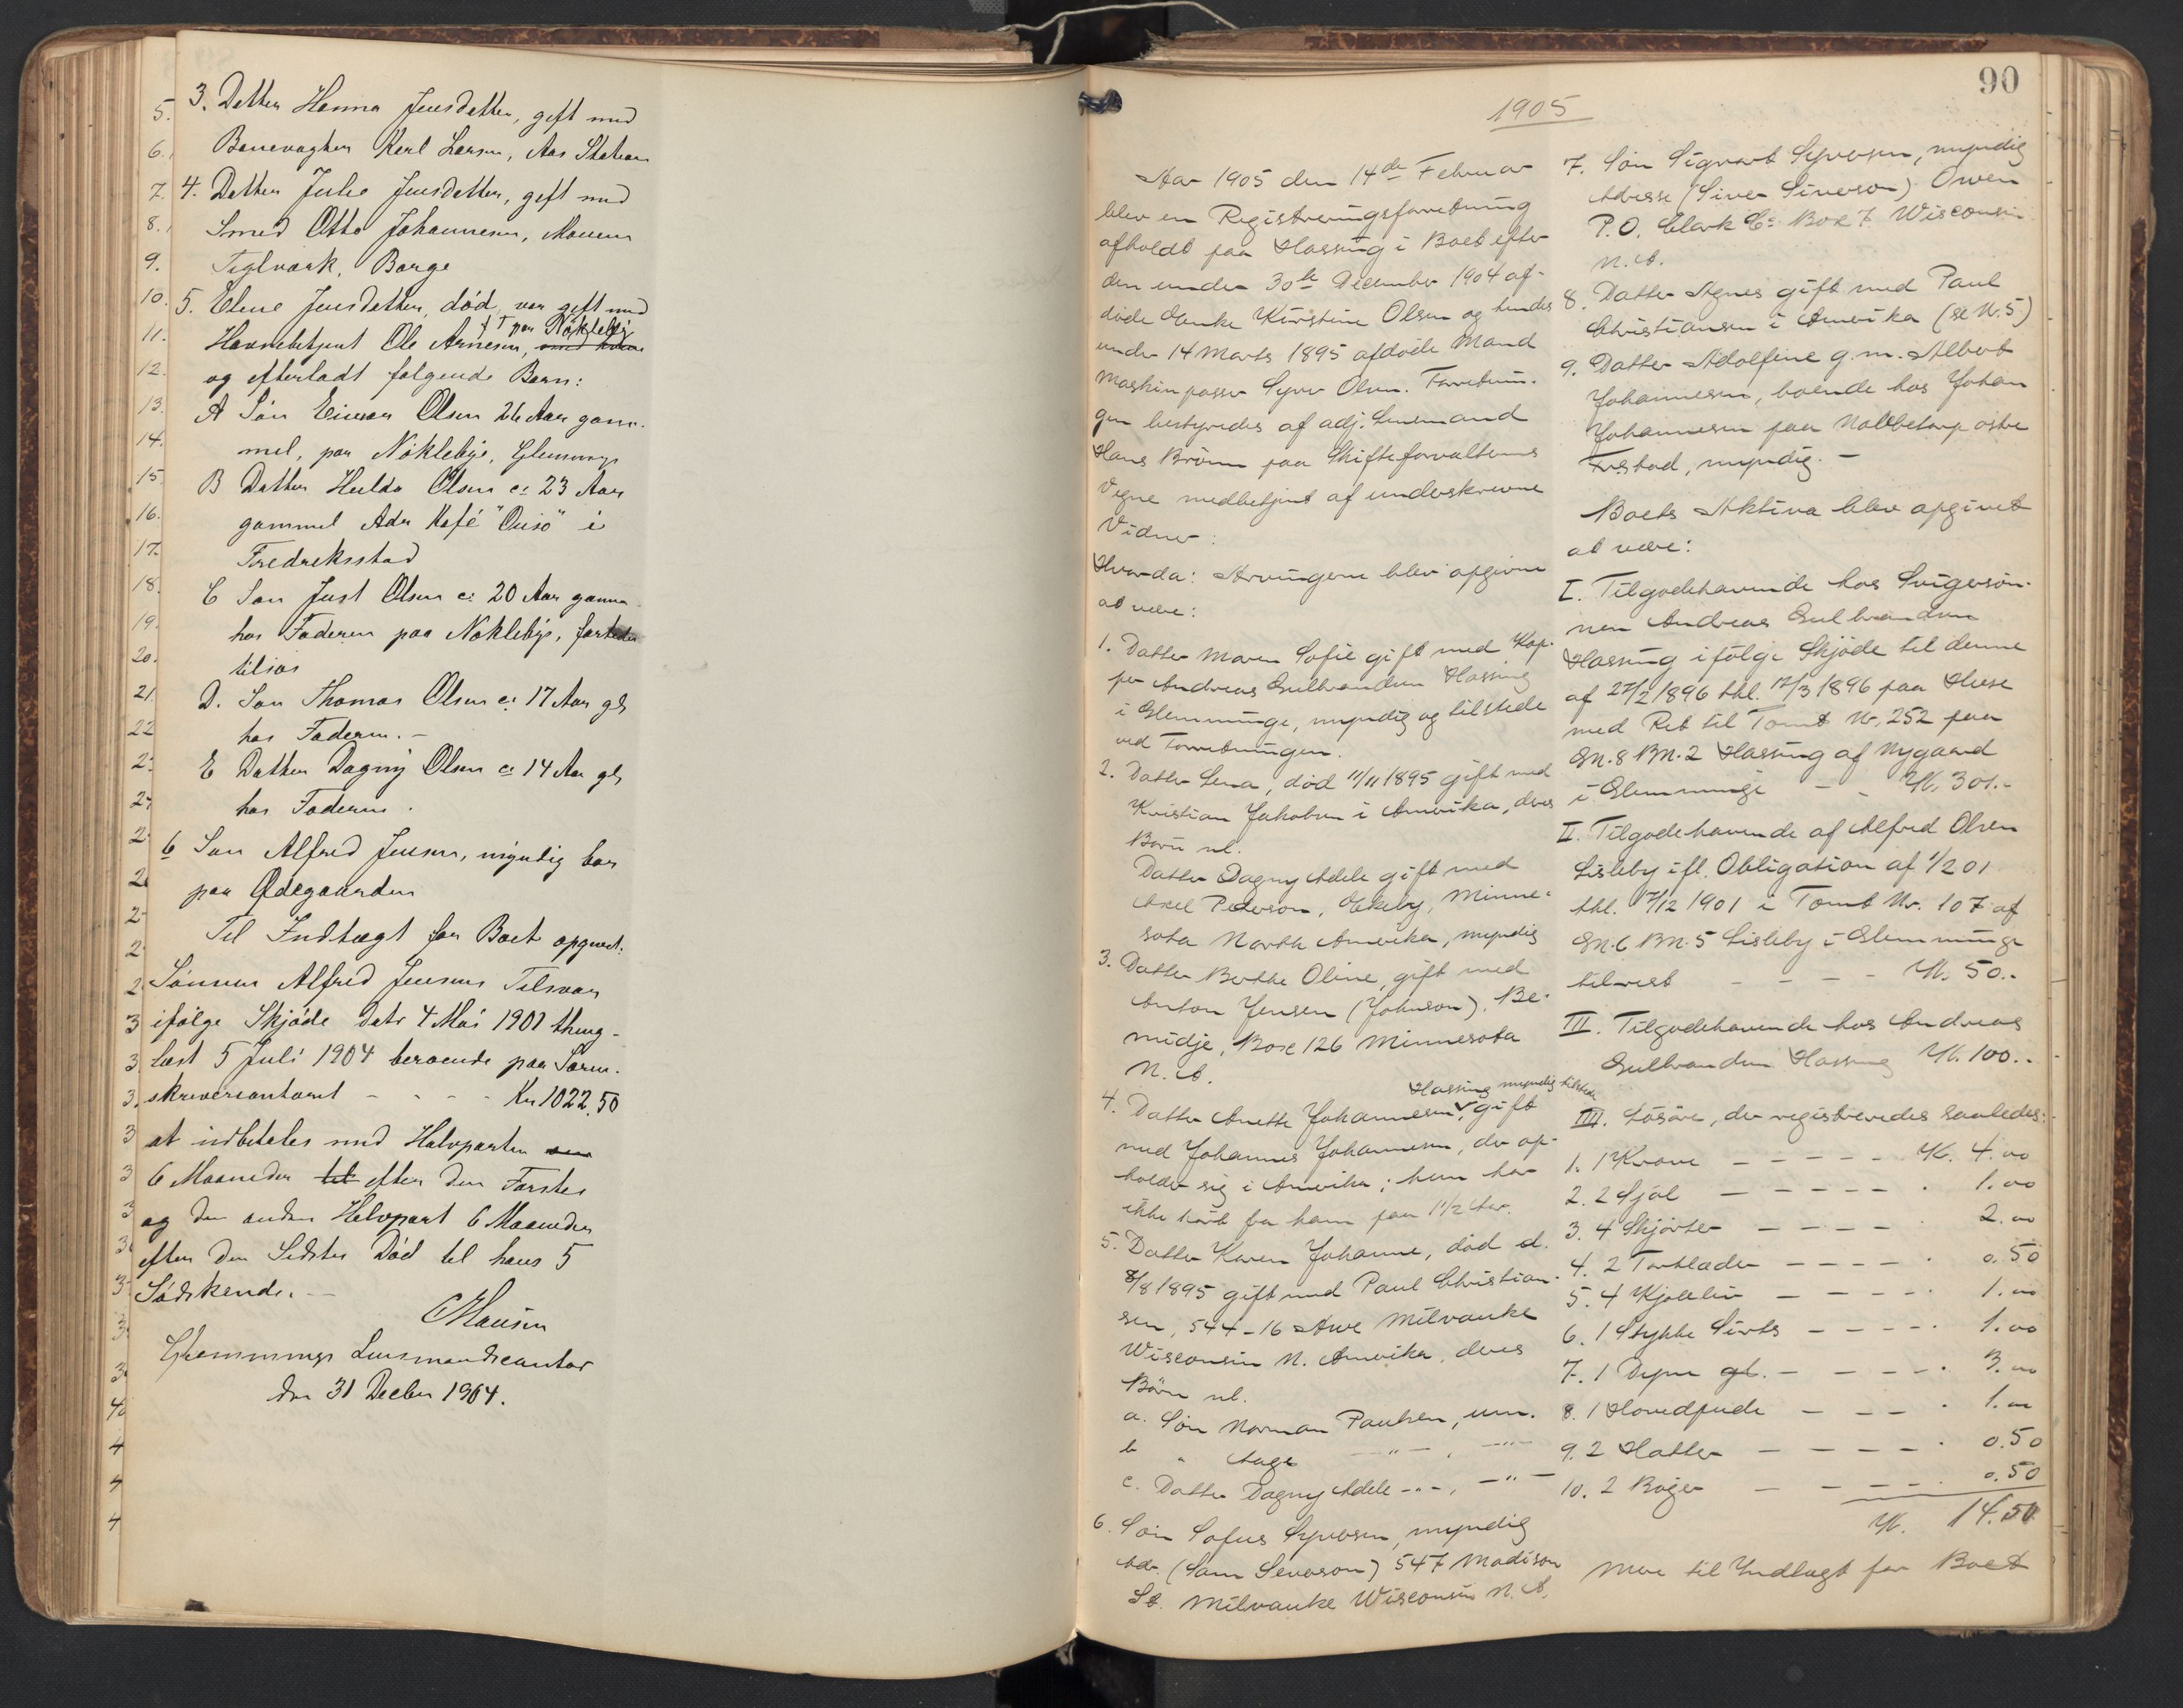 3. Datter Hanna Jensdatter, gift med
Banevogter Karl Larsen, Aas Station
4. Datter Julie Jensdatter, gift med
Smed Otto Johannesen, Moum
Teglværk, Borge
5. Elene Jensdatter, død, var gift med
Havnebetjent Ole Arnesen, paa Nöklebÿ
og efterladt følgende Børn:
A Søn Einar Olsen 26 Aar gam-
mel, paa Nöklebÿe, Glemminge
B Datter Hulda Olsen ca 23 Aar
gammel Adr Kafé "Oriso" i
Fredriksstad
C Søn Just Olsen ca 20 Aar gammel
hos Faderen paa Nöklebÿe, fortiden
tilsjøs
D. Søn Thomas Olsen ca 17 Aar gl
hos Faderen. -
E Datter Dagny Olsen ca 14 Aar gl
hos Faderen.
6 Søn Alfred Jensen, myndig bor
paa Ødegaarden
Til Indtægt for Boet opgaves:
Sønnen Alfred Jensens Tilsvar
ifølge Skjøde datr 4 Mai 1901 thing-
læst 5 Juli 1904 beroende paa Soren-
skrivercontoret - - - - Kr 1022.50
at indbetales med Halvparten
6 Maaneder til efter den Førstes
og den anden Halvpart 6 Maaneder
efter den Sidstes Død til hans 5
Södskende. -
CHansen
Glemminge Lensmandscontor
den 31 Decbr 1904.
90
1905
Aar 1905 den 14de Februar
blev en Registreringsforretning
afholdt paa Hassing i Boet efter
den under 30te December 1904 af-
døde Enke Kirstine Olsen og hendes
under 14 Marts 1895 afdøde Mand
Maskinpasser Syver Olsen. Forretnin-
gen bestyredes af adj. Lensmand
Hans Brönn paa Skifteforvalterens
Vegne medbetjent af underskrevne
Vidner:
Hvorda: Arvingerne blev opgivne
at være:
1. Datter Maren Sofie gift med Kap-
per Andreas Gulbrandsen Hassing
i Glemminge, myndig og tilstede
ved Forretningen.
2. Datter Lena, død 11/11 1895 gift med
Kristian Jakobsen i Amerika, deres
Børn nl.
Datter Dagny Adele gift med
Axel Pederson, Ekeby, Minne-
sota North Amerika, myndig
3. Datter Berthe Oline, gift med
Anton Jensen (Johnson), Be-
midje, Box 126 Minnesota
N. A.
4. Datter Anette Johannesen, Hassing myndig tilstede gift
med Johannes Johannesen, der op-
holder sig i Amerika; hun har
ikke hørt fra ham paa 1 1/2 Aar.
5. Datter Karen Johanne, død d.
8/8 1895 gift med Paul Christian-
sen, 544-16 Awe Milvauke
Wisconsin N. Amerika, deres
Børn nl.
a. Søn Norman Paulsen, um.
b " Aage -"-, -"-
c. Datter Dagny Adele -"-, -"-
6. Søn Sofus Syversen, myndig
Adr. (Sam Severson) 547 Madison
St. Milvauke Wisconsin N. A.
7. Søn Sigvart Syversen, myndig
Adresse (Siver Siverson) Owen
P.O. Clark Co Box 7 Wisconsin
N. A.
8. Datter Agnes gift med Paul
Christiansen i Amerika (se N. 5)
9. Datter Adolfine g. m. Albert
Johannesen, boende hos Johan
Johannesen paa Nabbetorp østre
Frstad, myndig. -
Boets Aktiva blev opgivet
at være:
I. Tilgodehavende hos Svigersøn-
nen Andreas Gulbrandsen
Hassing ifølge Skjøde til denne
af 27/2 1896 thl. 12/3 1896 paa Huse
med Ret til Tomt Nr. 252 paa
Gn. 8 Bn. 2 Hassing af Nygaard
i Glemminge - - Kr. 301.-
II. Tilgodehavende af Alfred Olsen
Lisleby ifl. Obligation af 1/2 01
thl. 17/12 1901 i Tomt Nr. 107 af
Gn. 6 Bn. 5 Lisleby i Glemminge
tilrest - - - - Kr. 50.-
III. Tilgodehavende hos Andreas
Gulbrandsen Hassing Kr. 100.-
IIII. Løsøre, der registreredes saaledes:
1. 1 Krave - - - - - Kr. 4.00
2. 2 Sjal - - - - - . 1.00
3. 4 Skjørter - - - - . 2.00
4. 2 Forklæder - - - - . 0.50
5. 4 Kjoleliv - - - - . 1.00
6. 1 Stykke Sirts - - - - . 1.00
7. 1 Dyne gl. - - - - . 3.00
8. 1 Hovedpude - - - . 1.00
9. 2 Hatter - - - - . 0.50
10. 2 Bøger - - - - . 0.50
Kr. 14.50
Mere til Indtægt for Boet